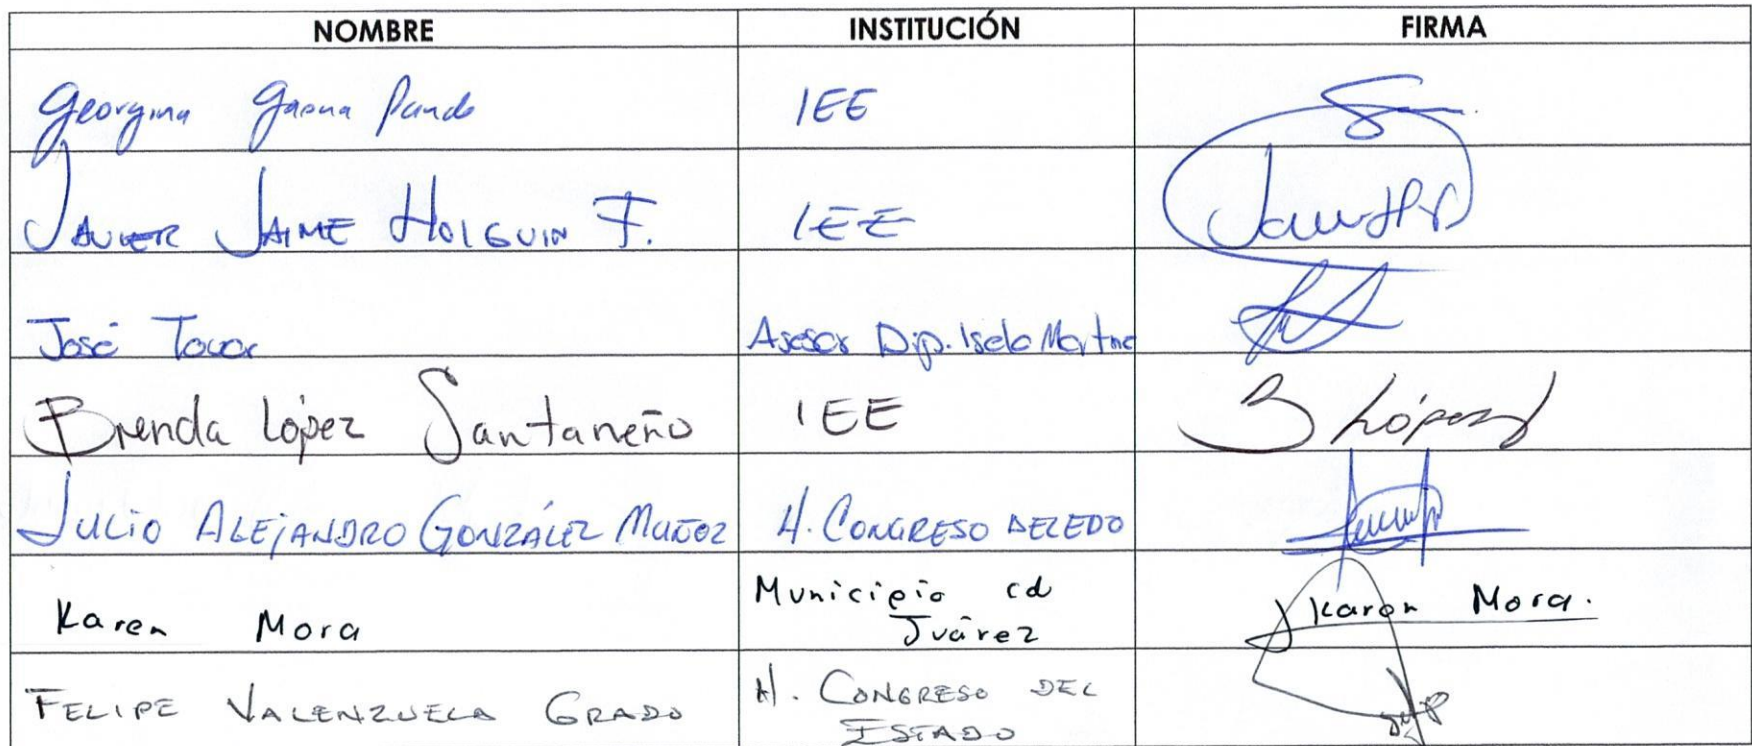 NOMBRE INSTITUCIÓN FIRMA
Georgina Gaona Pando IEE
JAVIER JAIME HOLGUIN F. IEE
José Tovar Asesor Dip. Isela Martine
Brenda López Santaneño IEE B López
JULIO ALEJANDRO GONZÁLEZ MUÑOZ H. CONGRESO DEL EDO
Karen Mora Municipio cd Juárez Karen Mora.
FELIPE VALENZUELA GRADO H. CONGRESO DEL ESTADO